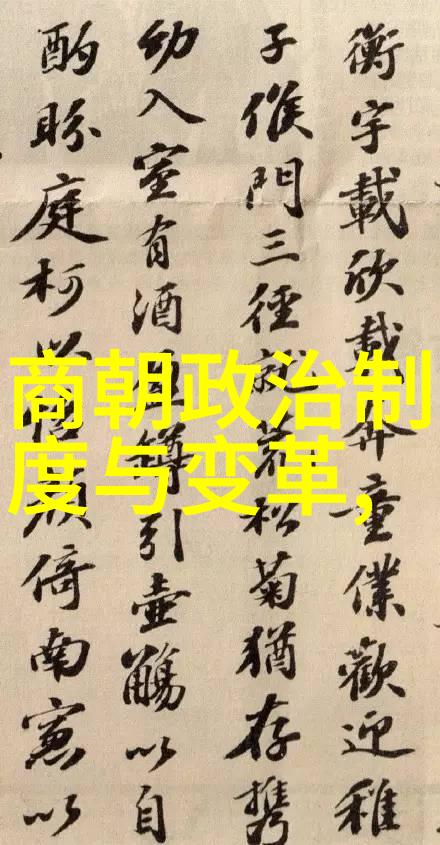 衡宇載欣載奔童僕歡迎稚
子候門三徑就荒松菊猶存携
幼入室有酒盈罇引壺觴以自
酌眄庭柯以怡顏倚南窻以
商朝政治制
度与变革,